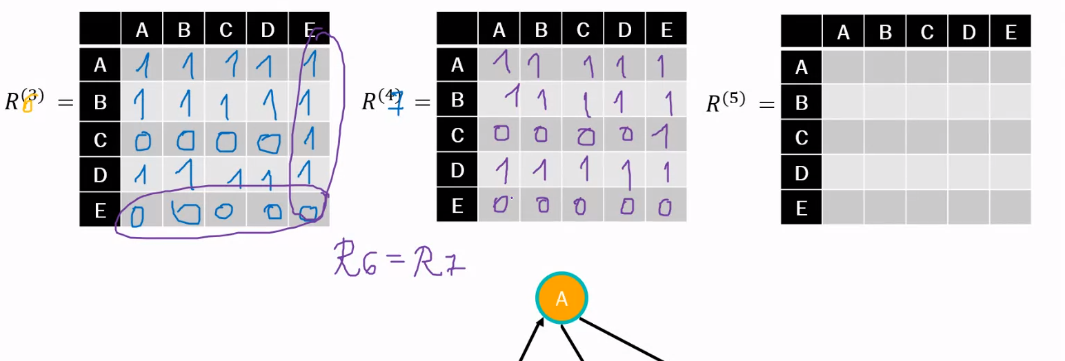 A B C D E
A 1 1 1 1 1
B 1 1 1 1 1
C 0 0 0 0 1
D 1 1 1 1 1
E 0 0 0 0 0
R(3) =
A B C D E
A 1 1 1 1 1
B 1 1 1 1 1
C 0 0 0 0 1
D 1 1 1 1 1
E 0 0 0 0 0
R(4) =
A B C D E
A
B
C
D
E
R(5) =
R6 = R7
A